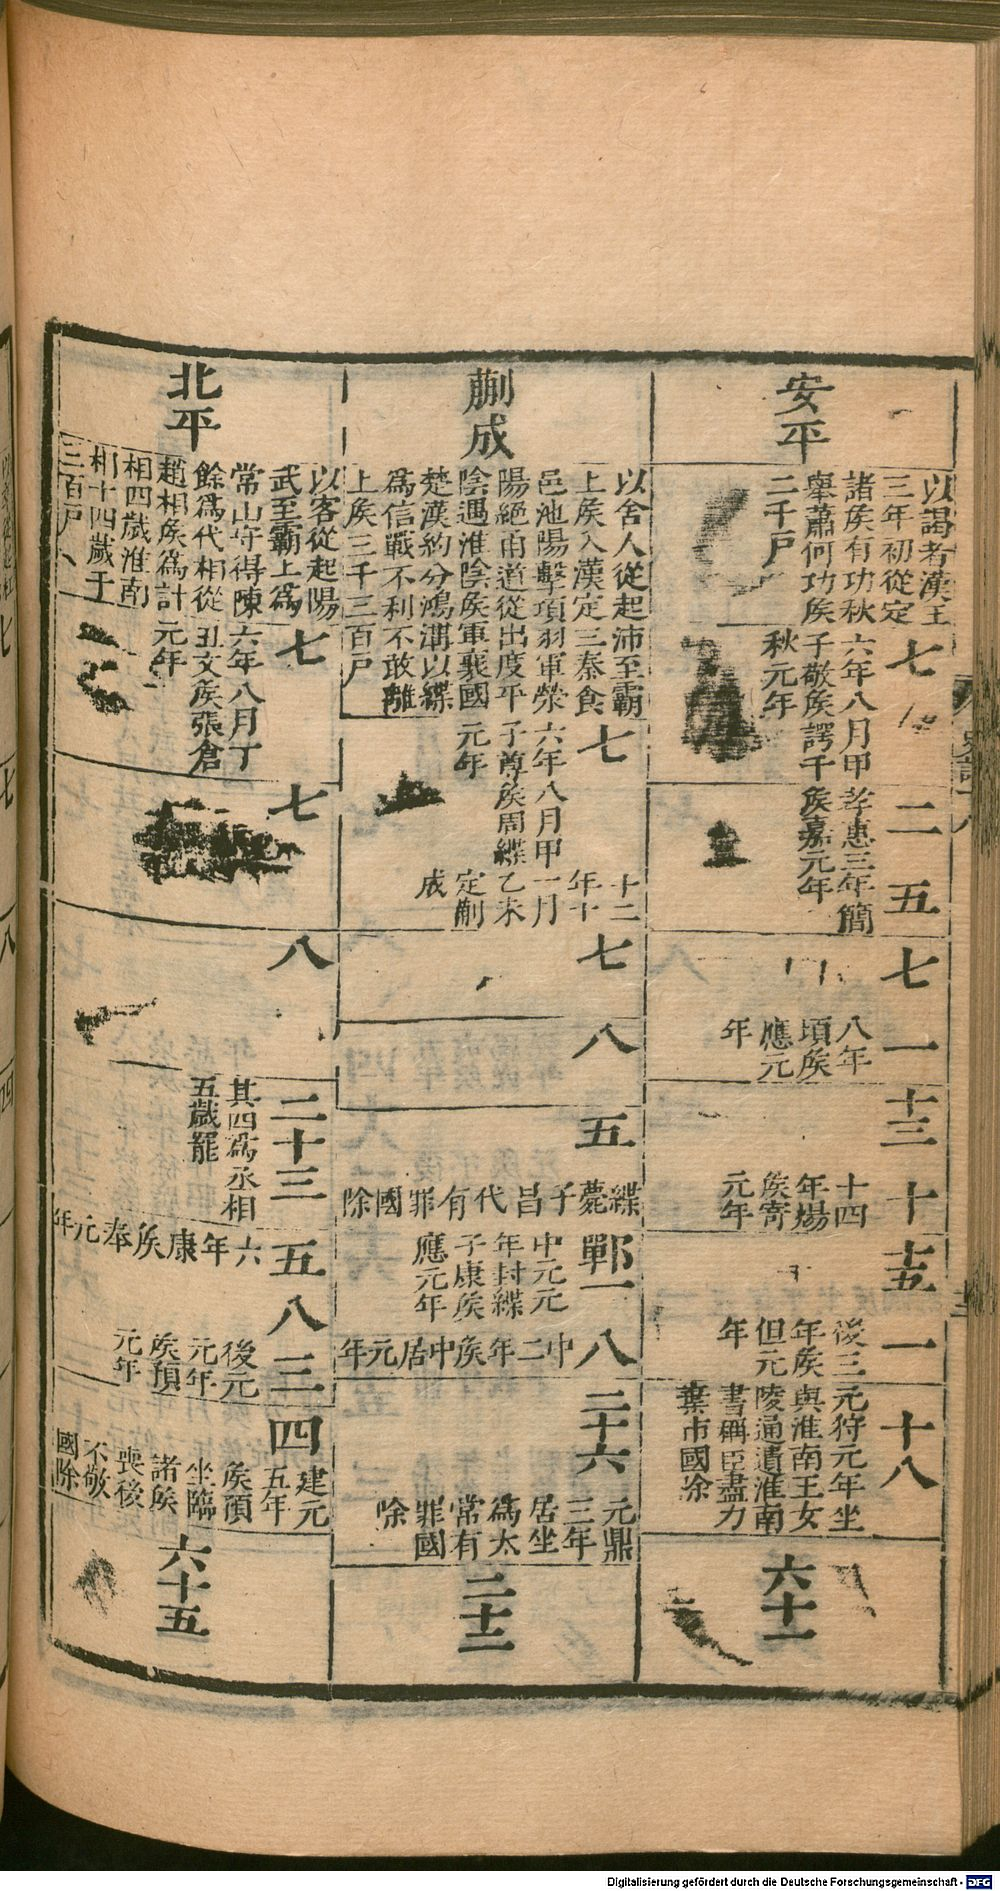 安平
以謁者漢王
三年初從定
諸侯有功秋
舉蕭何功侯
二千戶
七
六年八月甲
子敬侯諤千
秋元年
二
孝惠三年簡
侯嘉元年
五
七
一
八年
頃侯
應元
年
十三
十
十四
年煬
侯寄
元年
十五
一
後三
年侯
但元
年
十八
元狩元年坐
與淮南王女
陵通遺淮南
書稱臣盡力
棄市國除
六十一
蒯成
以舍人從起沛至霸
上侯入漢定三秦食
邑池陽擊項羽軍滎
陽絕甬道從出度平
陰遇淮陰侯軍襄國
楚漢約分鴻溝以緤
爲信戰不利不敢離
上侯三千三百戶
七
六年八月甲
子尊侯周緤
元年
十二
年十
一月
乙未
定蒯
成
七
八
五
緤薨子昌代有罪國除
鄲一
中元元
年封緤
子康侯
應元年
八
中二年侯中居元年
二十六
元鼎
三年
居坐
爲太
常有
罪國
除
二十二
北平
以客從起陽
武至霸上爲
常山守得陳
餘爲代相從
趙相侯爲計
相四歲淮南
相十四歲千
三百戶
七
六年八月丁
丑文侯張倉
元年
七
八
二十三
其四爲丞相
五歲罷
五
六年康侯奉元年
八
三
後元
元年
侯預
元年
四
建元
五年
侯預
坐臨
諸侯
喪後
不敬
國除
六十五
Digitalisierung gefördert durch die Deutsche Forschungsgemeinschaft - DFG